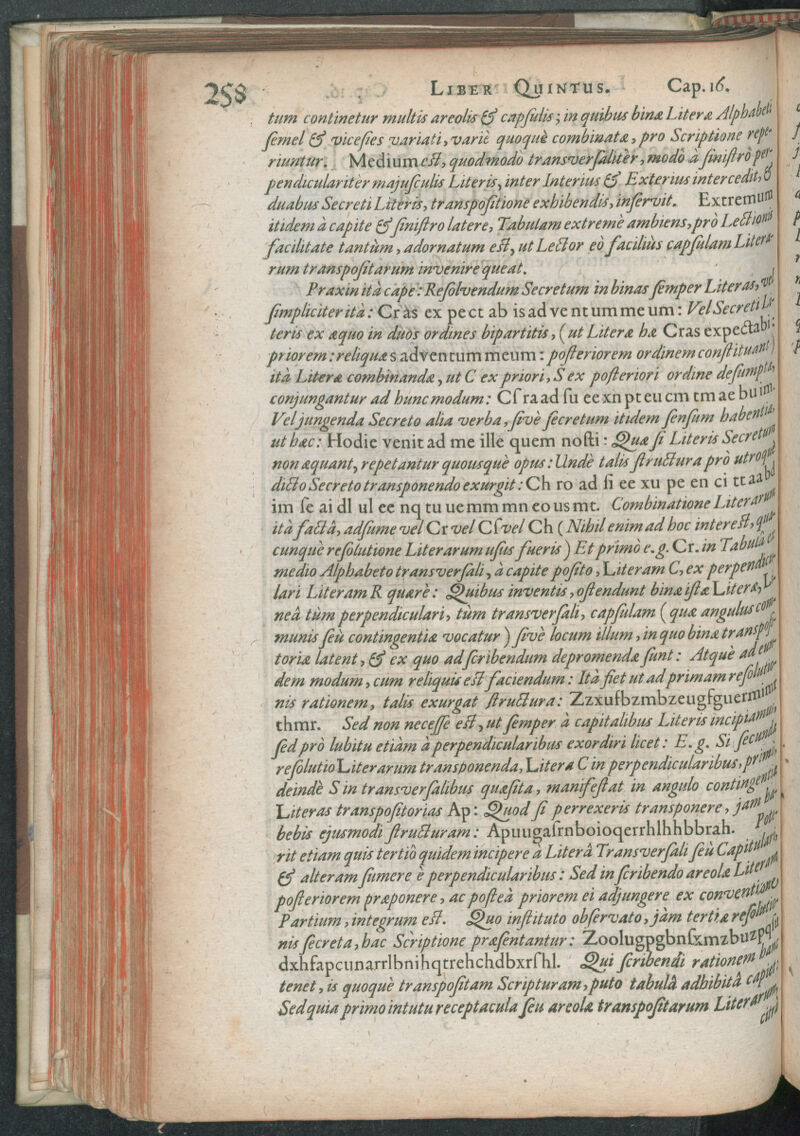 258 LIBER QUINTUS. Cap. 16.
tum continetur multis areolis & capsulis; in quibus binæ Literæ Alphabeti
semel & vicesies variati, variè quoquè combinatæ, pro Scriptione repe-
riuntur. Medium est, quodmodo transversaliter, modò à sinistro per-
pendiculariter majusculis Literis, inter Interius & Exterius intercedit, &
duabus Secreti Literis, transpositione exhibendis, inservit. Extremum
itidem à capite & sinistro latere, Tabulam extremè ambiens, prò Lectionis
facilitate tantùm, adornatum est, ut Lector eò faciliùs capsulam Litera-
rum transpositarum invenire queat.
Praxin ità cape: Resolvendum Secretum in binas semper Literas, vel
simpliciter ità: Cr as ex pect ab is ad ve nt um me um: Vel Secreti Li-
teris ex æquo in duos ordines bipartitis, (ut Literæ hæ Cras expectabi-
priorem: reliquæ s adventum meum: posteriorem ordinem constituant)
ità Literæ combinandæ, ut C ex priori, S ex posteriori ordine desumpta,
conjungantur ad hunc modum: Cs ra ad su ee xn pt eu cm tm ae bu im.
Vel jungenda Secreto alia verba, sivè secretum itidem sensum habentia,
ut hæc: Hodie venit ad me ille quem nosti: Quæ si Literis Secretum
non æquant, repetantur quousquè opus: Undè talis structura prò utroque
dicto Secreto transponendo exurgit: Ch ro ad si ee xu pe en ci tt aa bd
im se ai dl ul ee nq tu ue mm mn eo us mt. Combinatione Literarum
ità factâ, adsume vel Cr vel Cs vel Ch (Nihil enim ad hoc interest, quâ-
cunquè resolutione Literarum usus fueris) Et primò e.g. Cr. in Tabulæ
medio Alphabeto transversali, à capite posito, Literam C, ex perpendicu-
lari Literam R quære: Quibus inventis, ostendunt binæ istæ Literæ, Li-
neâ tùm perpendiculari, tùm transversali, capsulam (quæ angulus com-
munis seù contingentiæ vocatur) sivè locum illum, in quo binæ transposi-
toriæ latent, & ex quo adscribendum depromendæ sunt: Atquè ad eun-
dem modum, cum reliquis est faciendum: Ità fiet ut ad primam resolutio-
nis rationem, talis exurgat structura: Zzxufbzmbzeugfguermimt
thmr. Sed non necesse est, ut semper à capitalibus Literis incipiamus,
sed prò lubitu etiàm à perpendicularibus exordiri licet: E.g. Si secunda
resolutio Literarum transponenda, Litera C in perpendicularibus, primò
deindè S in transversalibus quæsita, manifestat in angulo contingentiæ
Literas transpositorias Ap: Quod si perrexeris transponere, jam ha-
bebis ejusmodi structuram: Apuugasrnboioqerrhlhhbbrah. Pote-
rit etiam quis tertiò quidem incipere à Literâ Transversali seù Capitulari,
& alteram sumere è perpendicularibus: Sed in scribendo areolæ Literam
posteriorem præponere, ac posteà priorem ei adjungere ex conventione
Partium, integrum est. Quo instituto observato, jàm tertiæ resolutio-
nis secreta, hac Scriptione præsentantur: Zoolugpgbnsxmzbuzpqsu
dxhfapcunarrlbnihqtrehchdbxrshl. Qui scribendi rationem hanc
tenet, is quoquè transpositam Scripturam, puto tabulâ adhibitâ capiet.
Sed quia primo intutu receptacula seu areolæ transpositarum Literarum